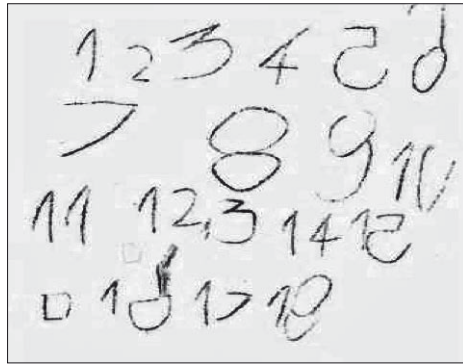 1 2 3 4 5 6
7 8 9 10
11 12 13 14 15
16 17 18